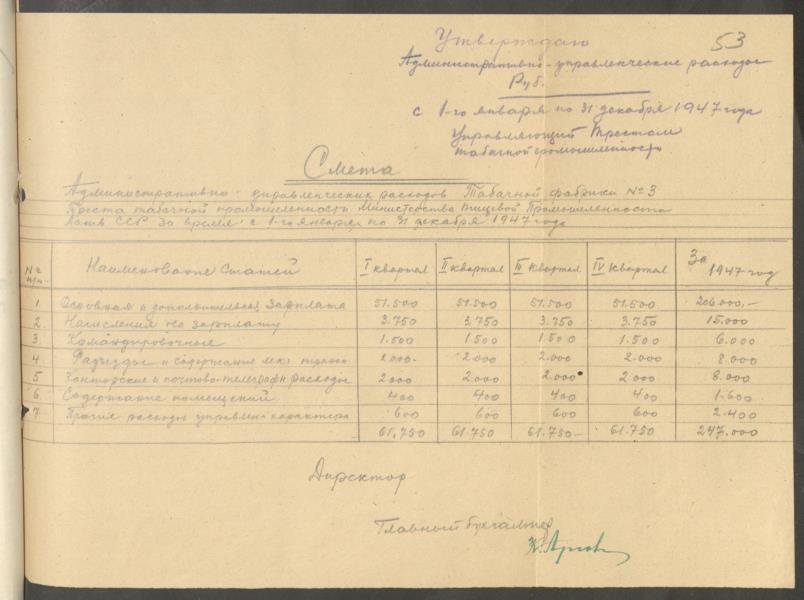 53
Утверждаю
Административно-управленческие расходы
Руб.
с 1-го января по 31 декабря 1947 года
Управляющий Трестом
табачной промышленности
Смета
Административно-управленческих расходов Табачной фабрики №3
Треста табачной промышленности Министерства Пищевой Промышленности
Латв. ССР за время с 1-го января по 31 декабря 1947 года
№№ Наименование статей I квартал II квартал III квартал IV квартал За 1947 год
1. Основная и дополнительная зарплата 51.500 51.500 51.500 51.500 206.000,-
2. Начисления на зарплату 3.750 3.750 3.750 3.750 15.000
3. Командировочные 1.500 1500 1500 1.500 6.000
4 Разъезды и содержание 2.000- 2.000 2.000 2.000 8.000
5 Конторские и почтово-телеграфн расходы 2000 2.000 2.000 2000 8.000
6 Содержание помещений 400 400 400 400 1.600
7 Прочие расходы управлен. характера 600 600 600 600 2.400
61.750 61.750 61.750- 61.750 247.000
Директор
Главный бухгалтер